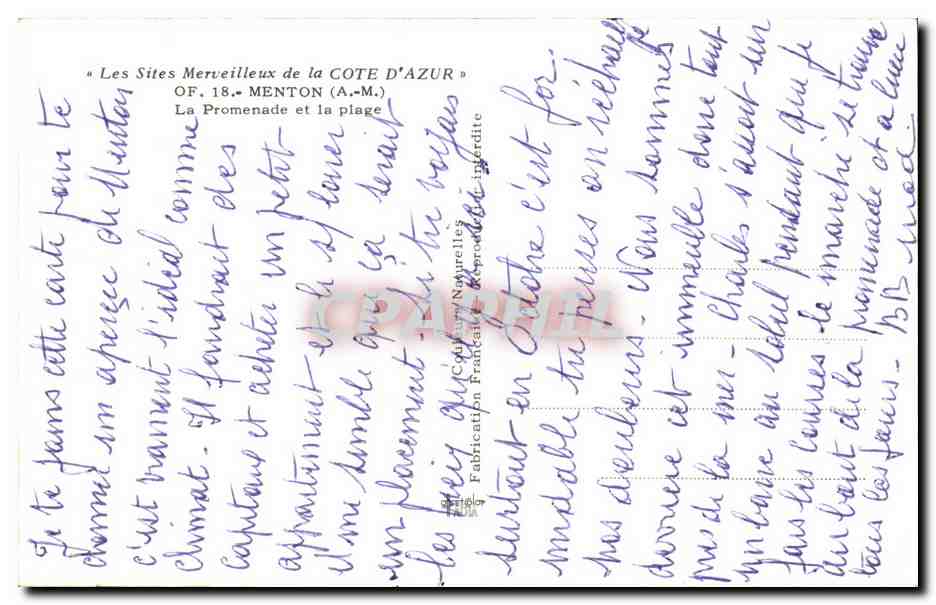 « Les Sites Merveilleux de la COTE D'AZUR »
OF. 18.- MENTON (A.-M.)
La Promenade et la plage
Couleurs Naturelles
Fabrication Française Reproduction interdite
CPAPHIL
Je te fais cette carte pour te
donner un aperçu de Menton
c'est vraiment l'idéal comme
climat. Il faudrait des
capitaux et acheter un petit
appartement et le s/louer
il me semble que ça serait
un placement. Si tu voyais
les prix
surtout en Octobre c'est for-
midable tu penses on réchauffe
nos douleurs. Nous sommes
derrière cet immeuble donc tout
près de la mer. Charles s'assoit sur
un banc au soleil pendant que je
fais les courses le marché se trouve
au bout de la promenade et a lieu
tous les jours. BB